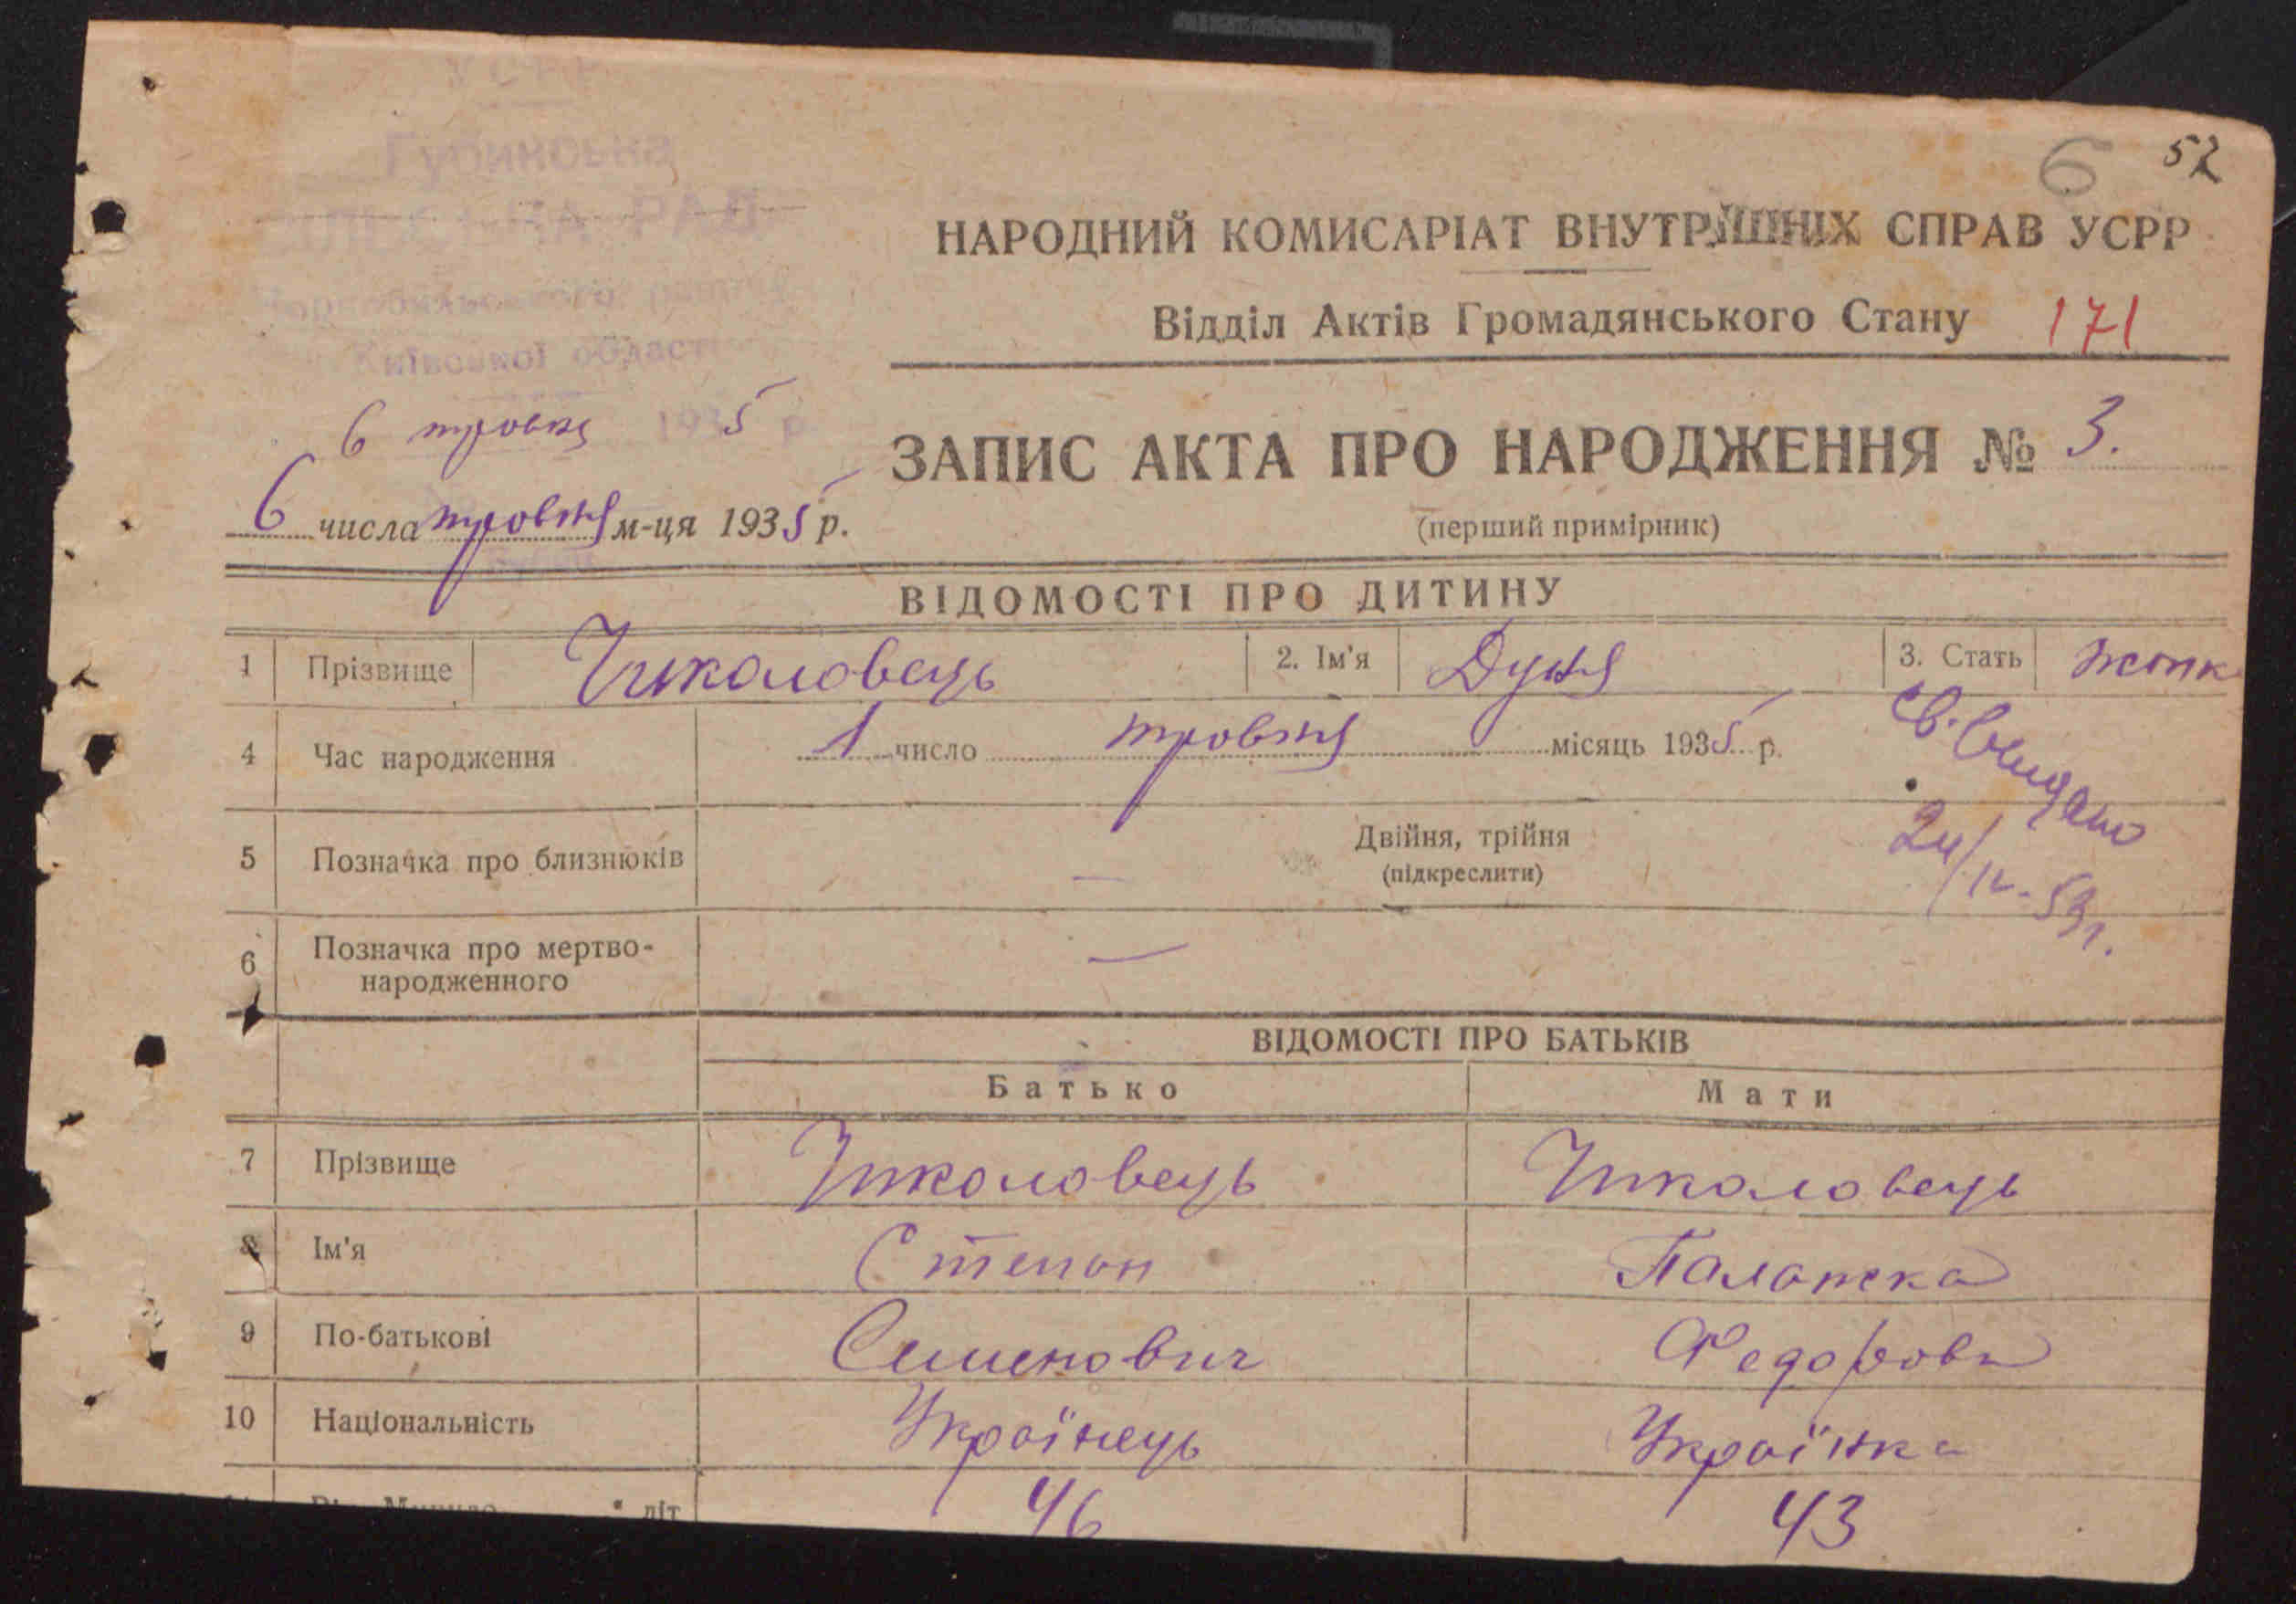 УСРР
Губинська
СІЛЬСЬКА РАДА
Чорнобильського району
Київської області
6 травня 1935 р.
6 числа травня м-ця 1935 р.
6 52
НАРОДНИЙ КОМИСАРІАТ ВНУТРІШНІХ СПРАВ УСРР
Відділ Актів Громадянського Стану 171
ЗАПИС АКТА ПРО НАРОДЖЕННЯ № 3.
(перший примірник)
ВІДОМОСТІ ПРО ДИТИНУ
1 Прізвище Школовець 2. Ім'я Дуня 3. Стать жінк
4 Час народження 1 число травня місяць 1935 р.
Св. выдано
24/IV-53г.
5 Позначка про близнюків — Двійня, трійня
(підкреслити)
6 Позначка про мертво-
народженного —
ВІДОМОСТІ ПРО БАТЬКІВ
Батько Мати
7 Прізвище Школовець Школовець
8 Ім'я Степан Палажка
9 По-батькові Семенович Федорова
10 Національність Українець Українка
літ 46 43